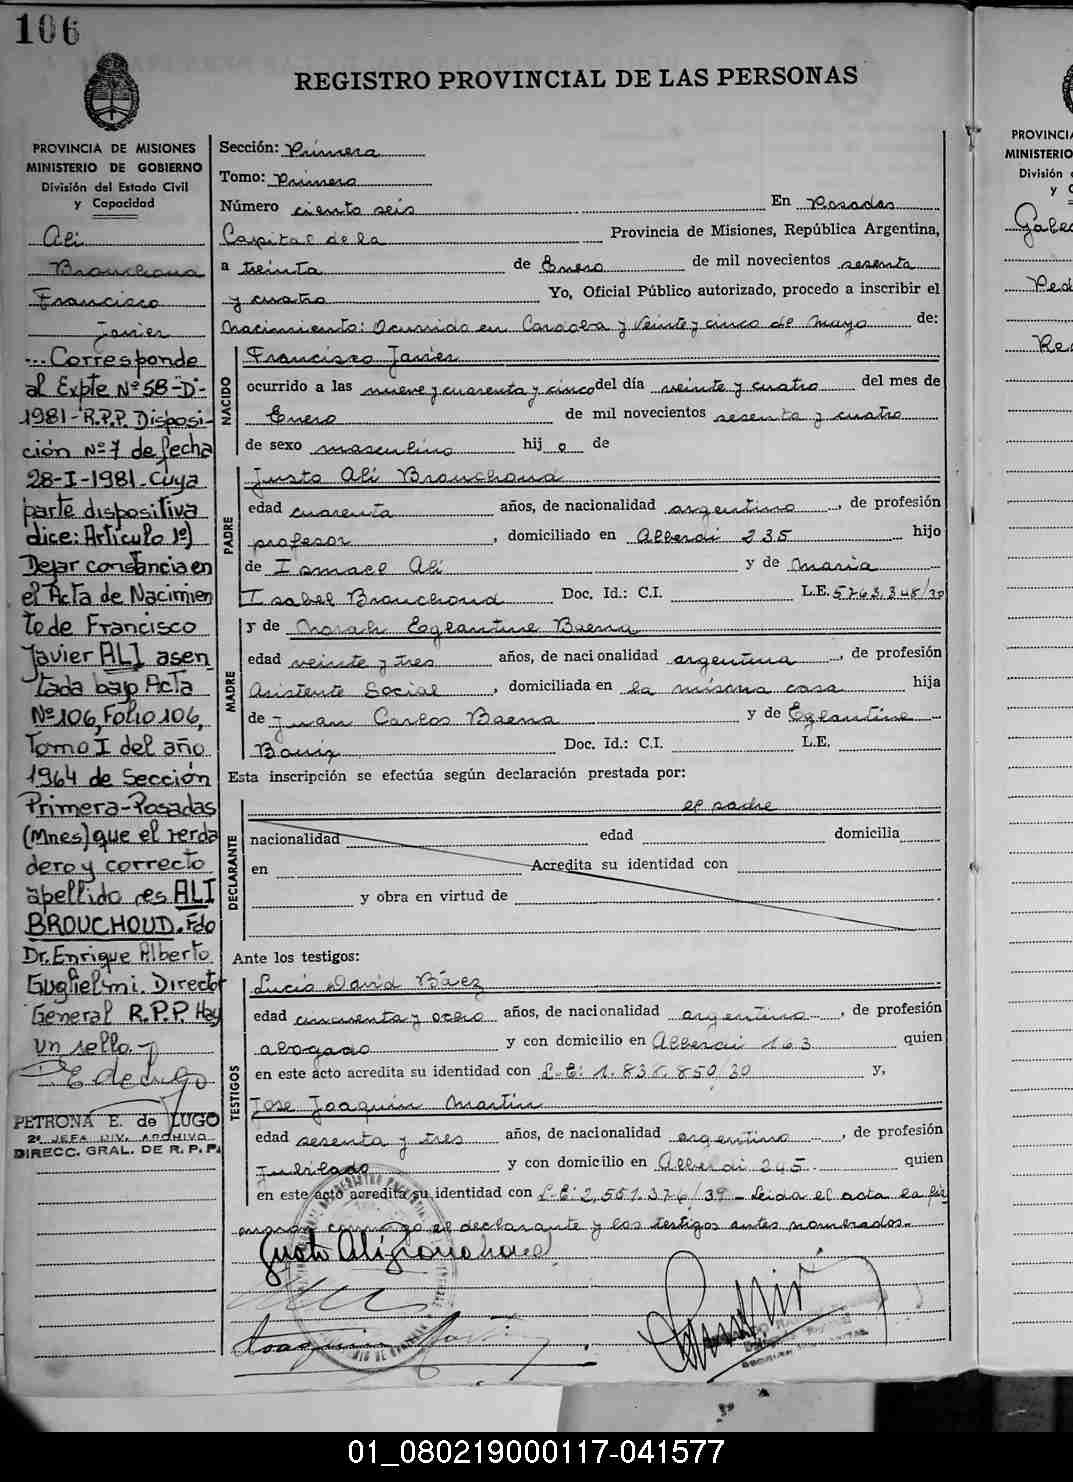 106
REGISTRO PROVINCIAL DE LAS PERSONAS
PROVINCIA DE MISIONES
MINISTERIO DE GOBIERNO
División del Estado Civil
y Capacidad
Ali
Brouchoud
Francisco
Javier
... Corresponde
al Expte Nº 58-D-
1981-R.P.P. Disposi-
ción Nº 7 de fecha
28-I-1981-Cuya
parte dispositiva
dice: Artículo 1º)
Dejar constancia en
el Acta de Nacimien
to de Francisco
Javier ALI asen
tada bajo Acta
Nº 106, Folio 106,
Tomo I del año
1964 de Sección
Primera-Posadas
(Mnes) que el verda
dero y correcto
apellido es ALI
BROUCHOUD. Fdo
Dr. Enrique Alberto
Guglielmi. Director
General R.P.P. Hay
un sello.-
PETRONA E. de LUGO
2ª JEFA DIV. ARCHIVO
DIRECC. GRAL. DE R. P. P.
Sección: Primera
Tomo: Primero
Número ciento seis En Posadas
Capital de la Provincia de Misiones, República Argentina,
a treinta de Enero de mil novecientos sesenta
y cuatro Yo, Oficial Público autorizado, procedo a inscribir el
nacimiento: Ocurrido en Cordoba y Veinte y cinco de Mayo de:
NACIDO
Francisco Javier
ocurrido a las nueve y cuarenta y cinco del día veinte y cuatro del mes de
Enero de mil novecientos sesenta y cuatro
de sexo masculino hijo de
PADRE
Justo Ali Brouchoud
edad cuarenta años, de nacionalidad argentino, de profesión
profesor, domiciliado en Alberdi 235 hijo
de Ismael Ali y de María
Isabel Brouchoud Doc. Id.: C.I. L.E. 5763.348/30
MADRE
y de Norah Eglantine Baena
edad veinte y tres años, de nacionalidad argentina, de profesión
Asistente Social, domiciliada en la misma casa hija
de Juan Carlos Baena y de Eglantine
Doc. Id.: C.I. L.E.
Esta inscripción se efectúa según declaración prestada por:
DECLARANTE
el padre
nacionalidad edad domicilia
en Acredita su identidad con
y obra en virtud de
Ante los testigos:
TESTIGOS
Lucio David Báez
edad cincuenta y ocho años, de nacionalidad argentino, de profesión
abogado y con domicilio en Alberdi 163 quien
en este acto acredita su identidad con L-E: 1.838.850/30 y,
Jose Joaquin Martin
edad sesenta y tres años, de nacionalidad argentino, de profesión
Jubilado y con domicilio en Alberdi 245 quien
en este acto acredita su identidad con L-E: 2.551.376/39 - Leida el acta la fir
maron conmigo el declarante y los testigos antes nombrados.-
Justo Ali Brouchoud
Joaquin Martin
PROVINCIA
MINISTERIO
División
y C
01_080219000117-041577